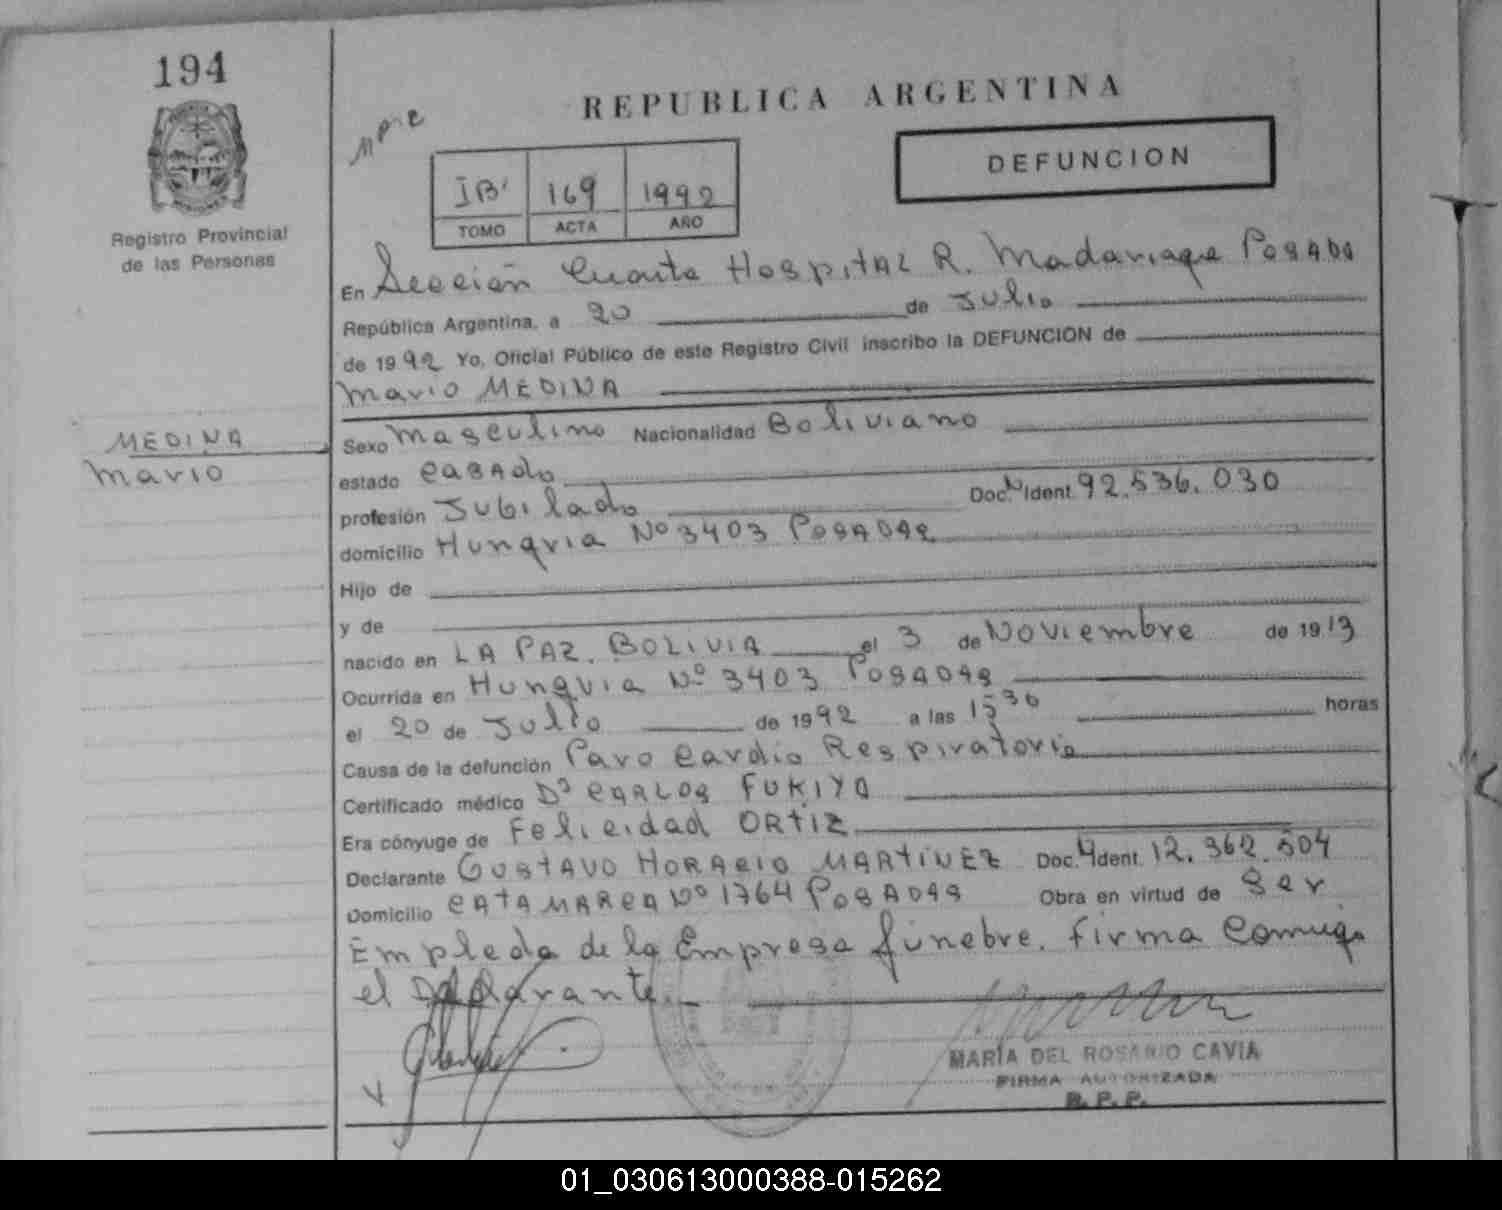 194
Registro Provincial
de las Personas
MEDINA
Mario
REPUBLICA ARGENTINA
DEFUNCION
169 1992
TOMO ACTA AÑO
En Sección Cuarta Hospital R. Madariaga Posadas
República Argentina, a 20 de Julio
de 1992 Yo, Oficial Público de este Registro Civil inscribo la DEFUNCION de
Mario MEDINA
Sexo Masculino Nacionalidad Boliviano
estado casado
profesión Jubilado Doc. Ident. 92.536.030
domicilio Hungria Nº 3403 Posadas
Hijo de
y de
nacido en LA PAZ. BOLIVIA el 3 de Noviembre de 1913
Ocurrida en Hungria Nº 3403 Posadas
el 20 de Julio de 1992 a las 15 30 horas
Causa de la defunción Paro Cardio Respiratorio
Certificado médico Dr CARLOS FUKIYA
Era cónyuge de Felicidad ORTIZ
Declarante GUSTAVO HORACIO MARTINEZ Doc. Ident. 12.362.504
Domicilio CATAMARCA Nº 1764 POSADAS Obra en virtud de Ser
Empleado de la Empresa fúnebre. Firma Conmigo
el Declarante.
MARIA DEL ROSARIO CAVIA
FIRMA AUTORIZADA
R. P. P.
01_030613000388-015262